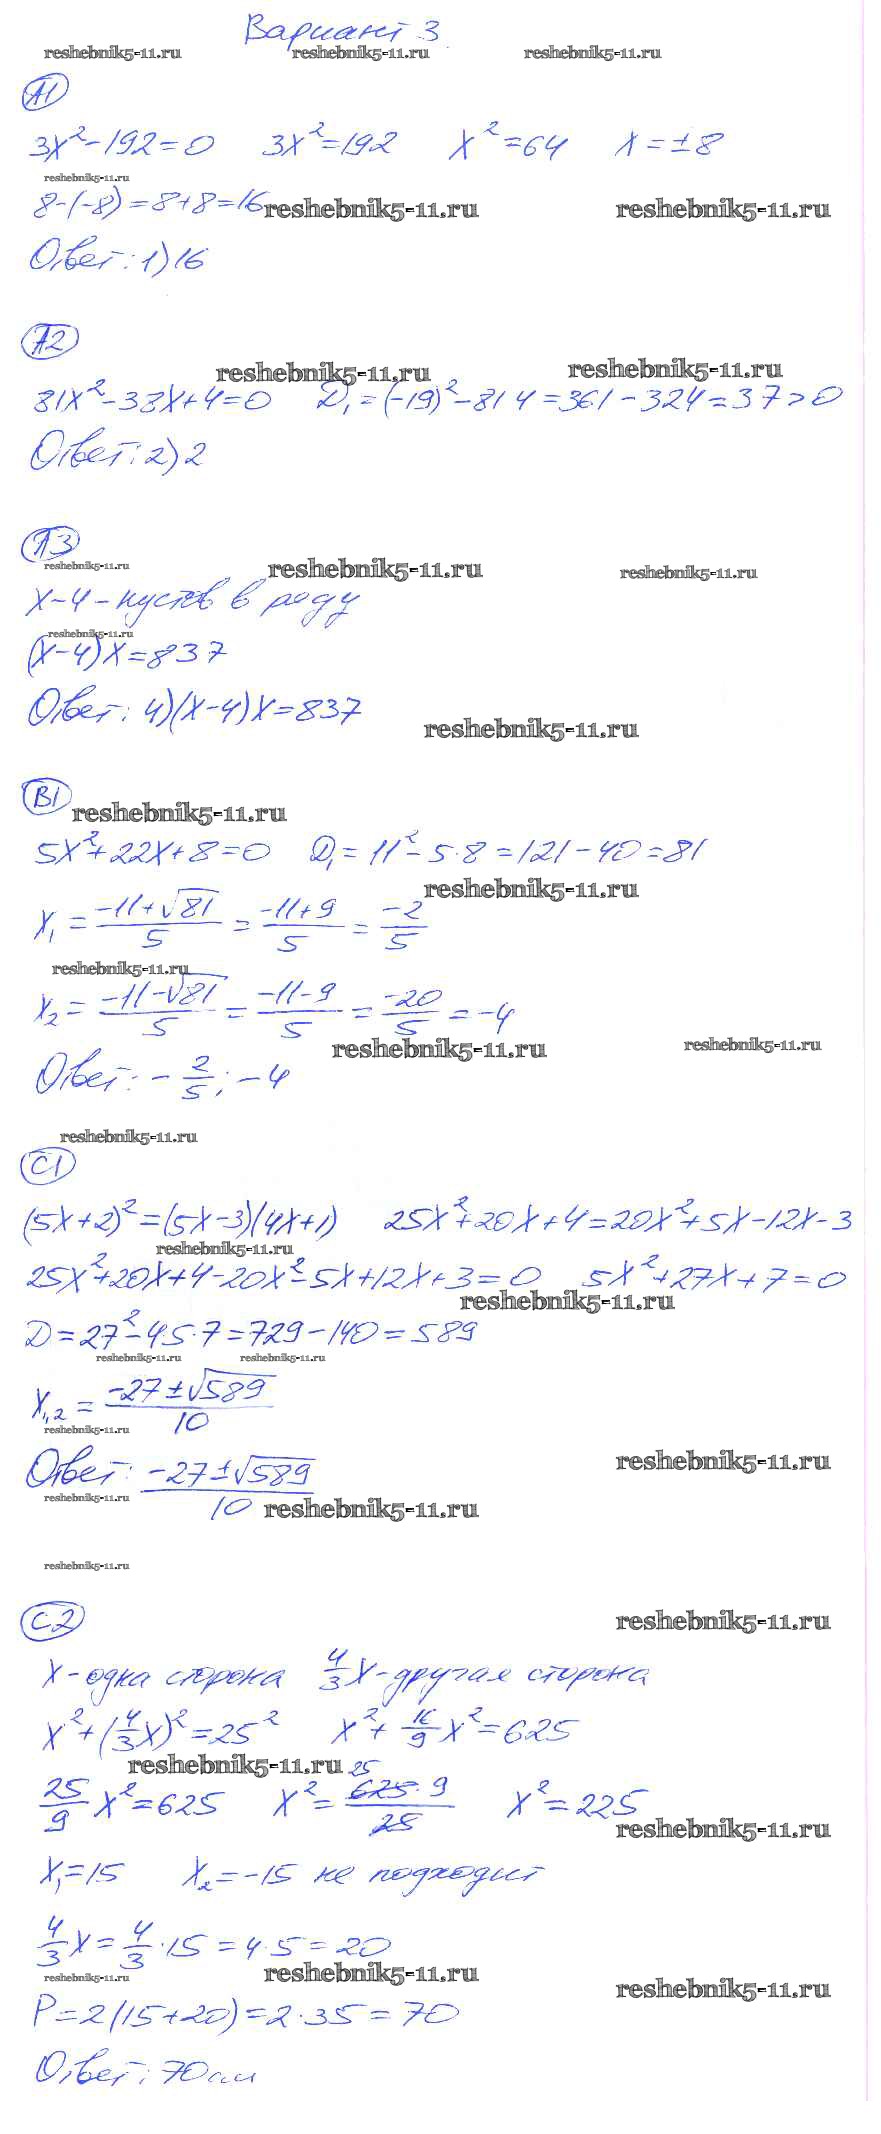 Вариант 3
reshebnik5-11.ru reshebnik5-11.ru reshebnik5-11.ru
А1
3x²-192=0 3x²=192 x²=64 x=±8
reshebnik5-11.ru
8-(-8)=8+8=16
reshebnik5-11.ru reshebnik5-11.ru
Ответ: 1) 16
А2
reshebnik5-11.ru reshebnik5-11.ru
81x²-38x+4=0 D₁=(-19)²-81·4=361-324=37>0
Ответ: 2) 2
А3
reshebnik5-11.ru reshebnik5-11.ru reshebnik5-11.ru
x-4-кустов в ряду
reshebnik5-11.ru
(x-4)x=837
Ответ: 4)(x-4)x=837
reshebnik5-11.ru
В1
reshebnik5-11.ru
5x²+22x+8=0 D₁=11²-5·8=121-40=81
reshebnik5-11.ru
x₁=(-11+√81)/5=(-11+9)/5=-2/5
reshebnik5-11.ru
x₂=(-11-√81)/5=(-11-9)/5=-20/5=-4
reshebnik5-11.ru reshebnik5-11.ru
Ответ: -2/5; -4
reshebnik5-11.ru
С1
(5x+2)²=(5x-3)(4x+1) 25x²+20x+4=20x²+5x-12x-3
reshebnik5-11.ru
25x²+20x+4-20x²-5x+12x+3=0 5x²+27x+7=0
reshebnik5-11.ru
D=27²-4·5·7=729-140=589
reshebnik5-11.ru reshebnik5-11.ru
x₁,₂=(-27±√589)/10
reshebnik5-11.ru
Ответ: (-27±√589)/10
reshebnik5-11.ru
reshebnik5-11.ru reshebnik5-11.ru
reshebnik5-11.ru
С2
reshebnik5-11.ru
x-одна сторона 4/3x-другая сторона
x²+(4/3x)²=25² x²+16/9x²=625
reshebnik5-11.ru
25/9x²=625 x²=(625·9)/25 25 x²=225
reshebnik5-11.ru
x₁=15 x₂=-15 не подходит
4/3x=4/3·15=4·5=20
reshebnik5-11.ru reshebnik5-11.ru reshebnik5-11.ru
P=2(15+20)=2·35=70
Ответ: 70см